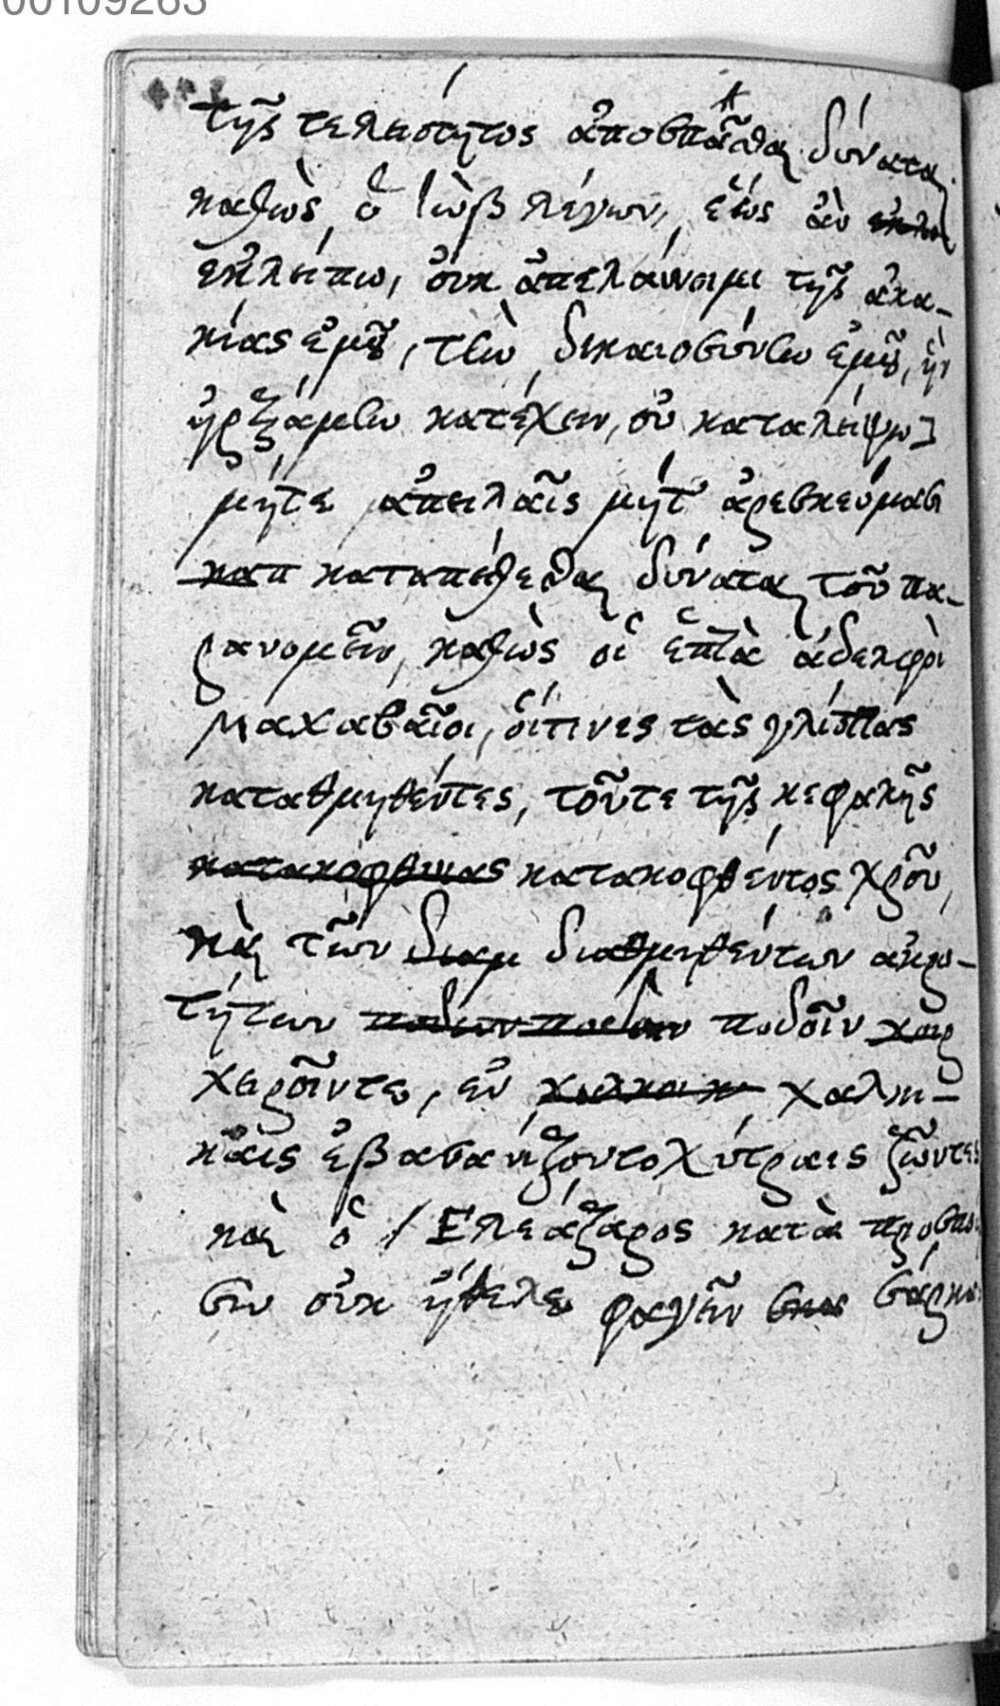 00109263
τῆς τελειότητος ἀποσπᾶσθαι δύναται
καθὼς ὁ Ἰὼβ λέγων, ἕως ἂν
ἐκλείπω, οὐκ ἀπελαύνοιμι τῆς ἀκα-
κίας ἐμοῦ, τὴν δικαιοσύνην ἐμοῦ, ἣν
ἠρξάμην κατέχειν, οὐ καταλείψω
μήτε ἀπειλαῖς μήτ' ἀρεσκεύμασι
καπ καταπείθεσθαι δύναται τοῦ πα-
ρανομεῖν, καθὼς οἱ ἑπτὰ ἀδελφοὶ
Μακαβαῖοι, οἵτινες τὰς γλώττας
κατατμηθέντες, τοῦτε τῆς κεφαλῆς
κατακοφθέντος χροῦ,
καὶ τῶν διατμ διατμηθέντων ἀκρο-
τήτων ποδῶν ποδῶν ποδοῖν χειρ
χεροῖντε, ἐν χαλκαικ χαλκι-
καῖς ἐβασανίζοντο χύτραις ζῶντες
καὶ ὁ Ἐλεάζαρος κατὰ
σιν οὐκ ἤθελε φαγεῖν σάρκα